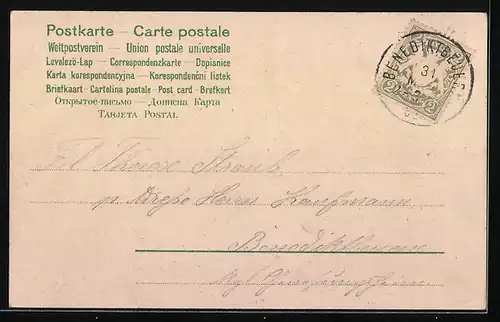 Postkarte — Carte postale
Weltpostverein — Union postale universelle
Levelező-Lap — Correspondenzkarte — Dopisnice
Karta korespondencyjna — Korespondenční lístek
Briefkaart - Cartolina postale - Post card - Brefkort
Открытое письмо — Дописна Карта
Tarjeta Postal
BENEDIKTBEUERN
31
2 2
Frl. Therese
p. Adresse Herrn Kaufmann
Benediktbeuern